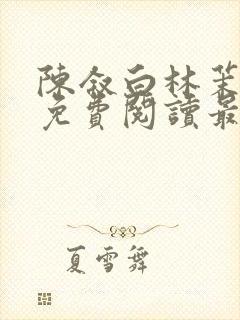 陳敘白林茉
免費閱讀最
夏雪舞